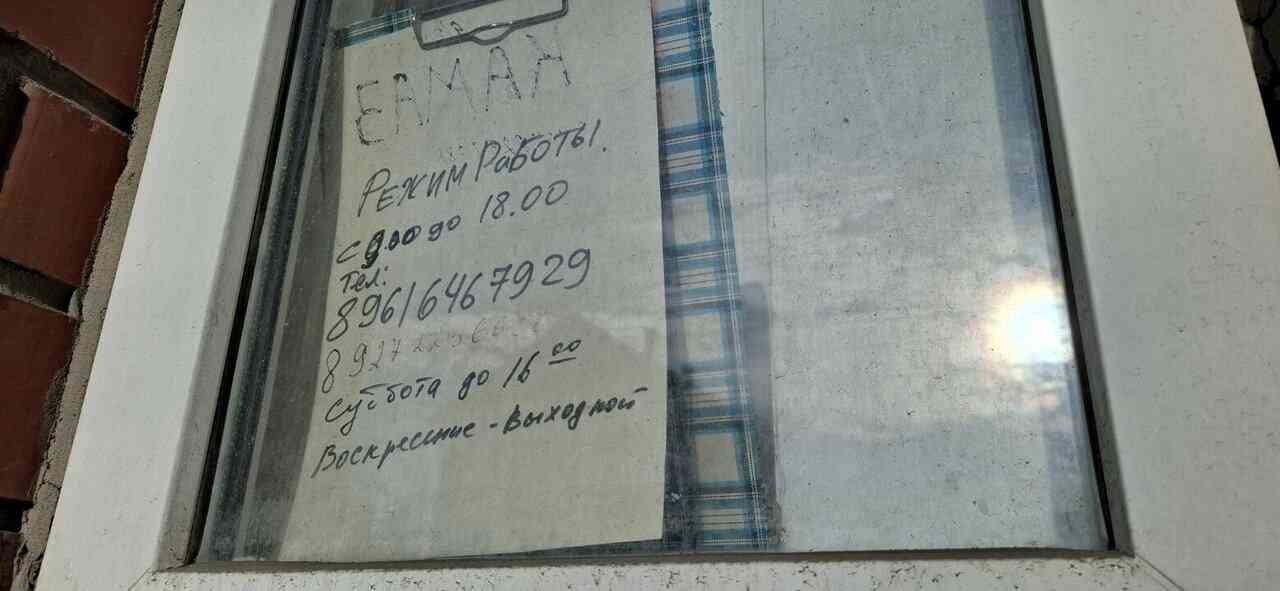 ЕАМАК
РЕЖИМ РаБОТЫ.
с 9.00 до 18.00
Тел:
89616467929
8927
суббота до 16 00
Воскресение - Выходной